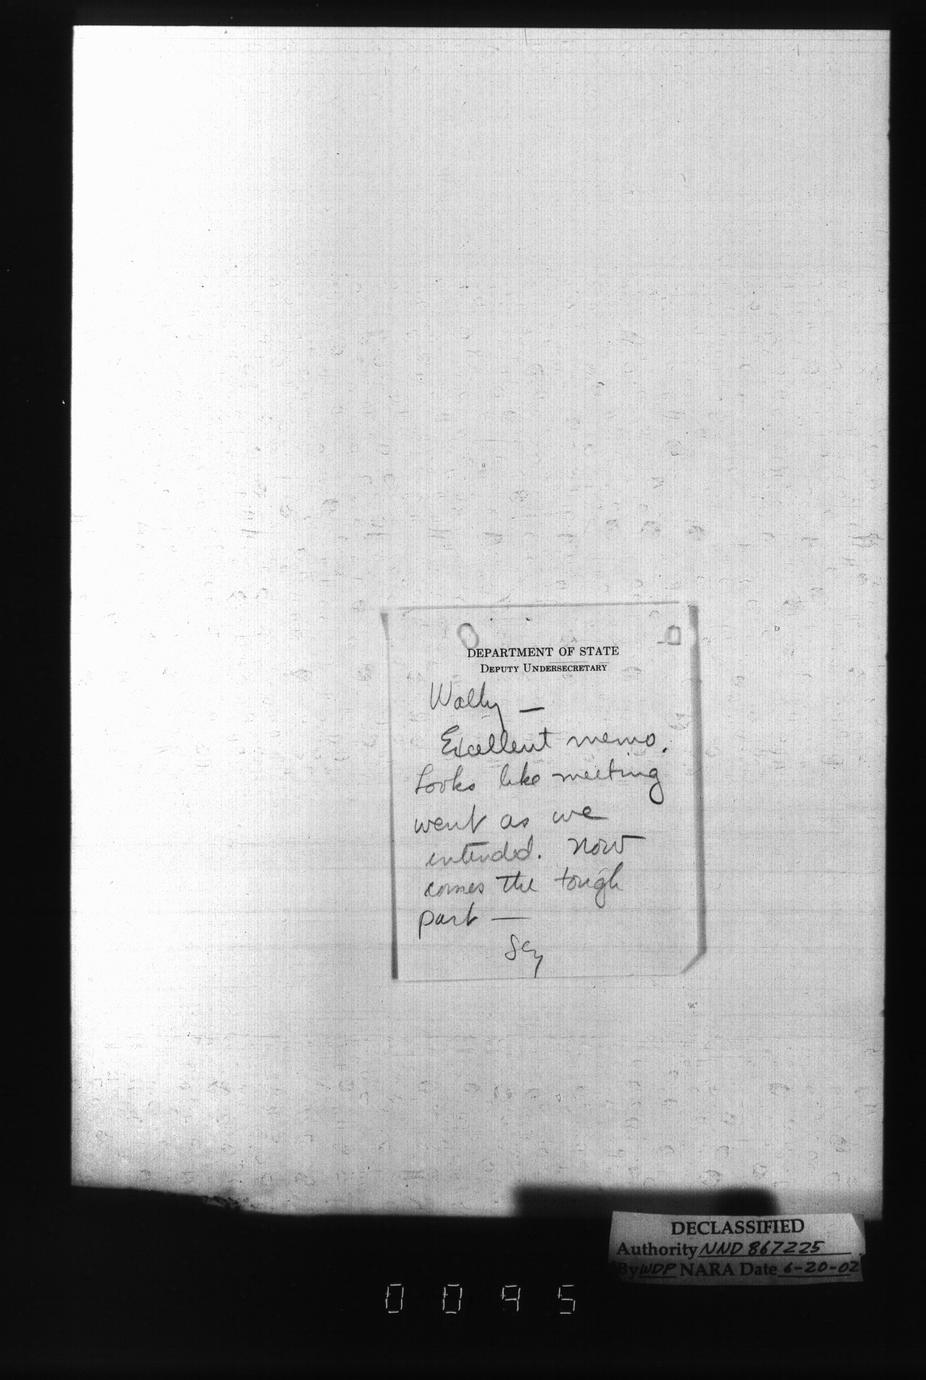 DEPARTMENT OF STATE
DEPUTY UNDERSECRETARY
Wally —
Excellent memo.
Looks like meeting
went as we
intended. Now
comes the tough
part —
DECLASSIFIED
Authority NND 867225
By WDP NARA Date 6-20-02
0095